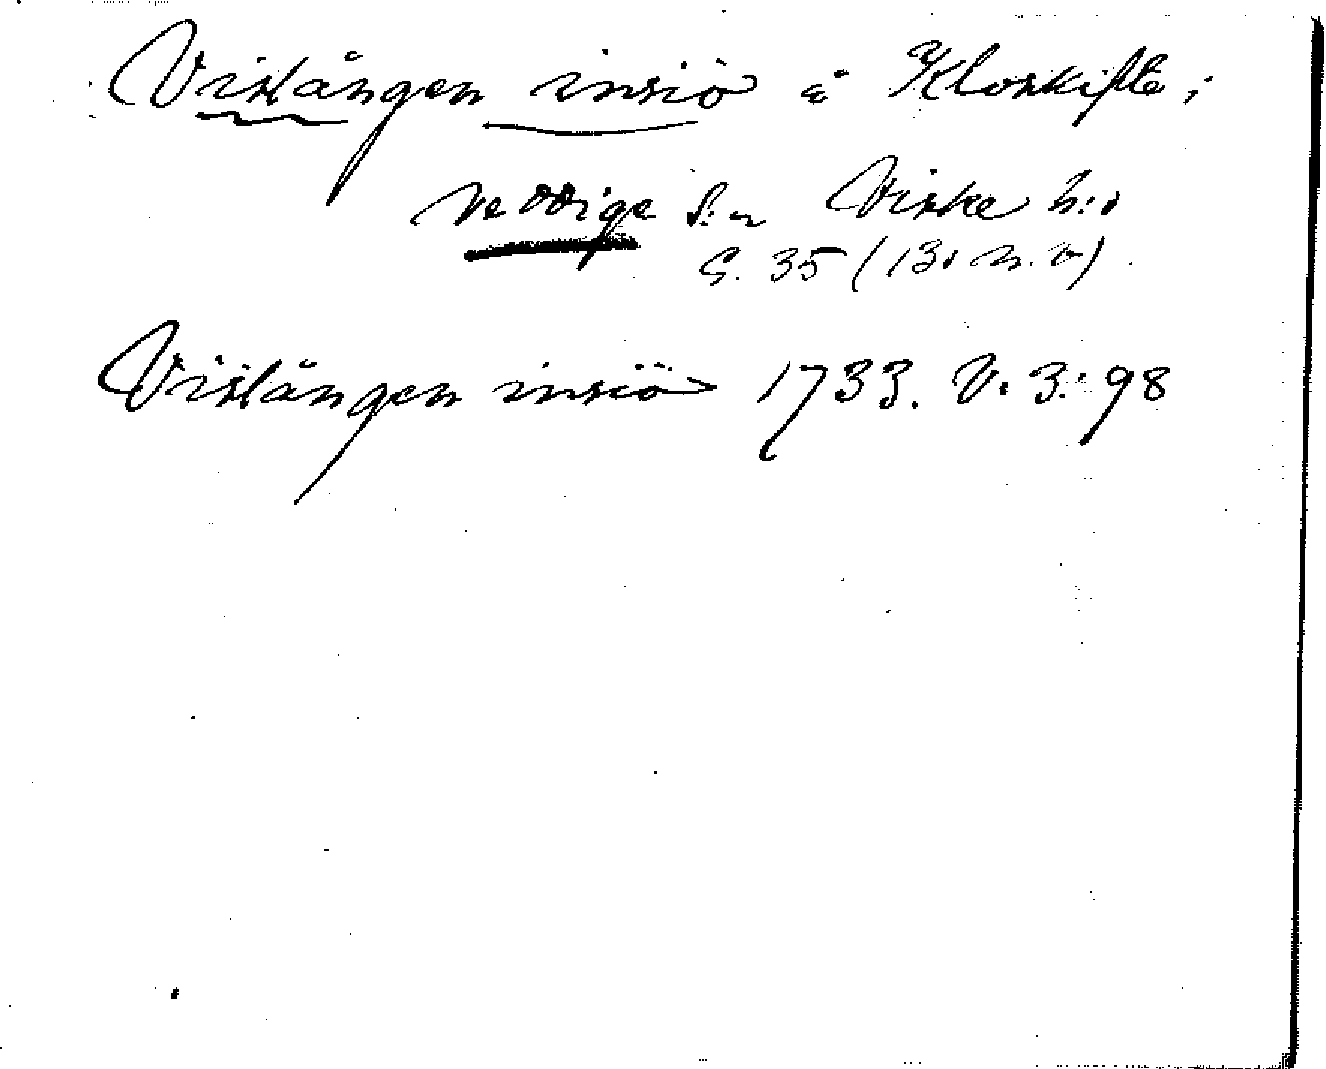 Vislången insiö å Kloskifte,
Veddige S:n Viske h:d
G. 35 (13. n. v)
Vislången insiö 1733. V. 3:98